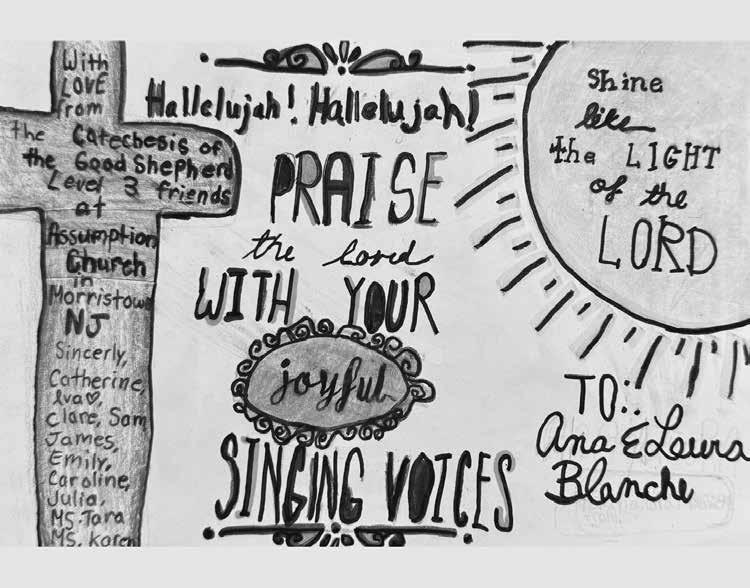 With
LOVE
from
the Catechesis of
the Good Shepherd
Level 3 friends
at
Assumption
Church
in
Morristown
NJ
Sincerly,
Catherine,
Eva♡,
Clare, Sam
James,
Emily,
Caroline,
Julia,
MS. Tara
MS. Karen
Hallelujah! Hallelujah!
PRAISE
the Lord
WITH YOUR
joyful
SINGING VOICES
Shine
like
the LIGHT
of the
LORD
TO:
Ana & Laura
Blanche